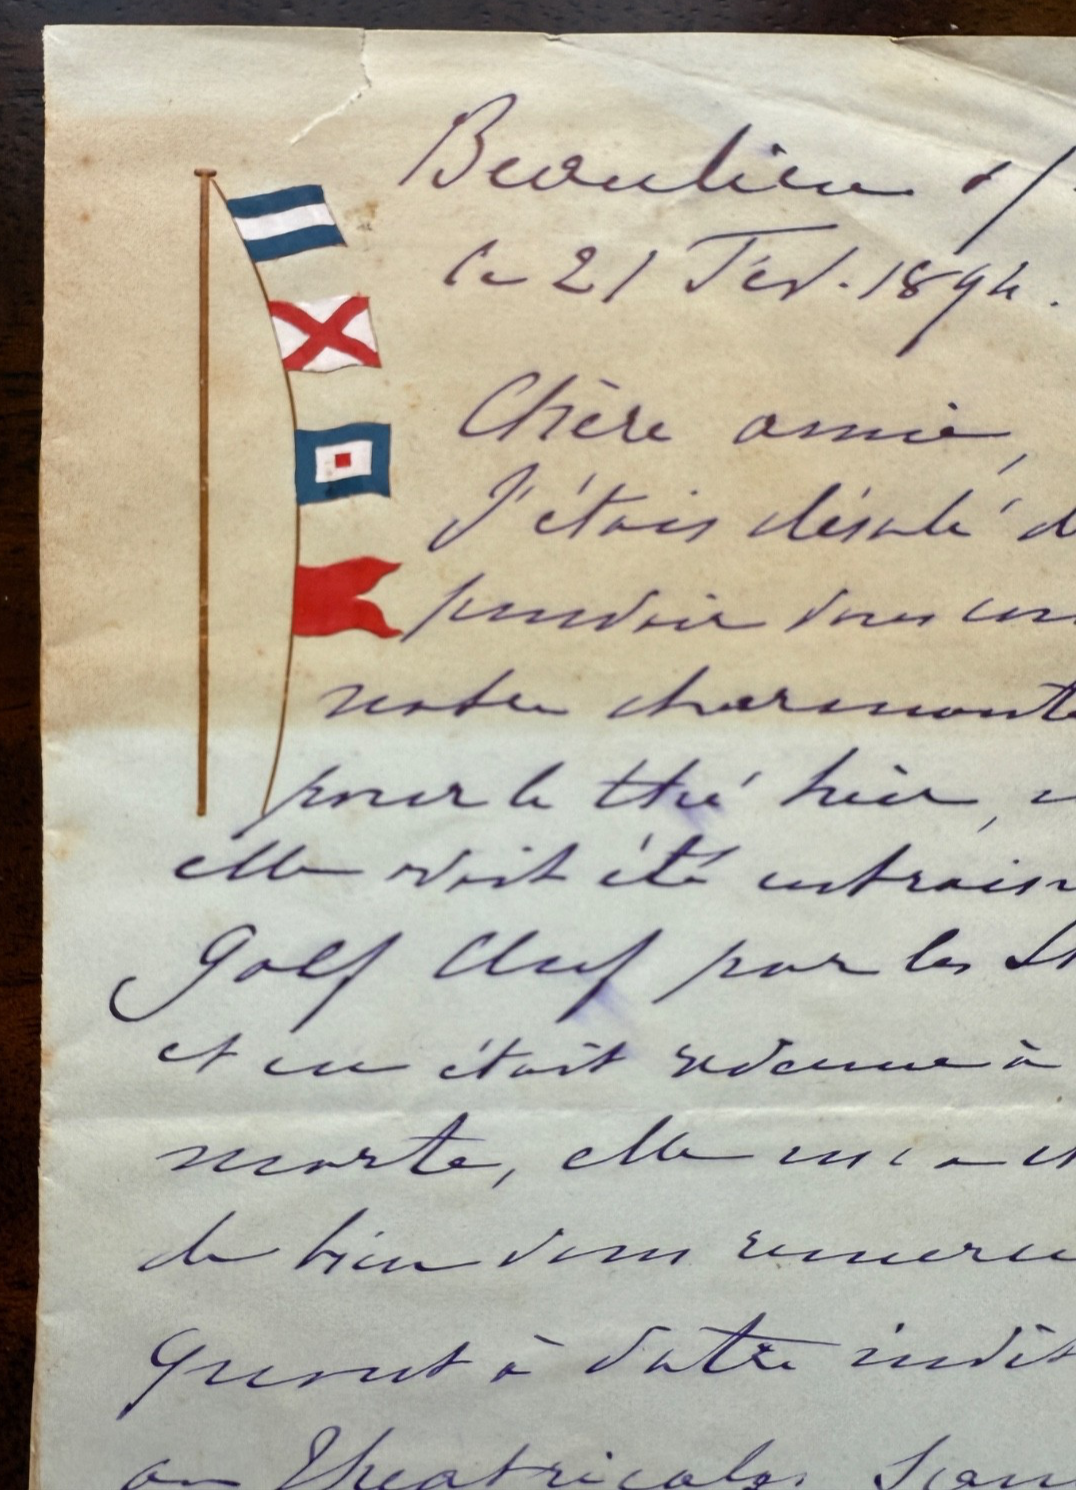 Beaulieu s/
le 21 Fév. 1894.
Chère amie,
J'étais désolé d
pouvoir vous
notre charmante
pour le thé hier,
elle avait été
Golf Club par les
et en était revenue à
morte, elle m'a
de bien vous
Quant à votre
au Theatricals